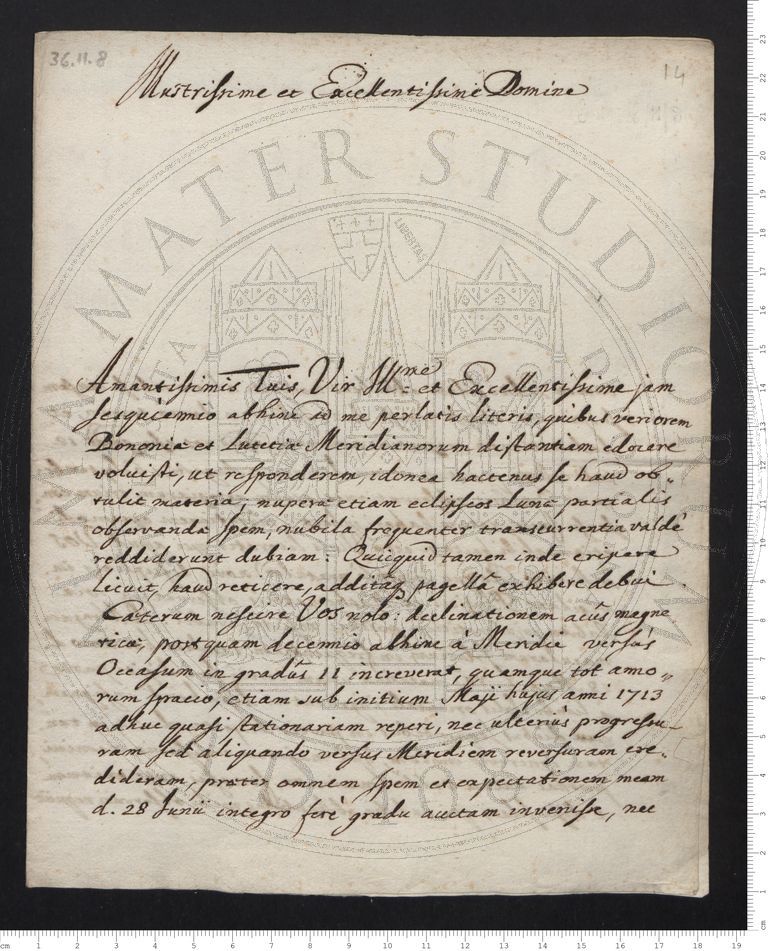 36.11.8
14
Illustrissime et Excellentissime Domine
Amantissimis Tuis, Vir Ill.me et Excellentissime jam
sesquiennio abhinc ad me perlatis literis, quibus veriorem
Bononiæ et Lutetiæ Meridianorum distantiam edocere
voluisti, ut responderem, idonea hactenus se haud ob„
tulit materia; nuperæ etiam eclipseos Lunæ partialis
observandæ spem, nubila frequenter transcurrentia valdè
reddiderunt dubiam: Quicquid tamen inde eripere
licuit, haud reticere, additaq pagellâ exhibere debui.
Cæterum nescire Vos nolo: declinationem acûs magne
ticæ, postquam decennio abhinc à Meridie versùs
Occasum in gradûs 11 increverat, quamque tot anno„
rum spacio, etiam sub initium Maji hujus anni 1713
adhuc quasi stationariam reperi, nec ulteriùs progressu„
ram sed aliquando versus Meridiem reversuram cre„
dideram, præter omnem spem et expectationem meam
d. 28 Junii integro ferè gradu auctam invenisse, nec
MATER STUDIORUM
LIBERTAS